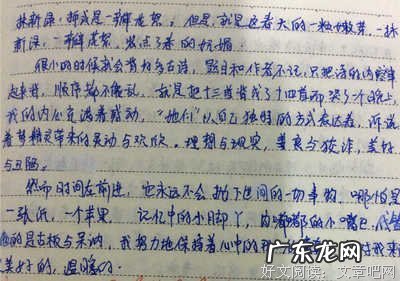 抹新绿，都或是一瓣花絮，但是，就是这春天的一粒嫩芽，一抹
新绿，一瓣花絮，发点了春的妩媚。
很小的时候就会背好多古诗，题目和作者不记，只把诗的内容串
起来背，顺序都不能乱，就是把十三首背成了十四首而哭了个晚上，
我的内心充满着感动，“她们”以自己独特的方式表达着，诉说
着梦精灵带来的灵动与欢欣。理想与现实，善良与狡诈，美好
与丑陋。
然而时间在前进，它永远不会抛下世间的一切事物，哪怕是
一张纸，一个苹果 记忆中的小脚丫，肉嘟嘟的小嘴巴，代替
的是古板与呆讷，我努力地保持着心中的那
美好的，温暖的。
广东龙网
好文阅读：文章吧网